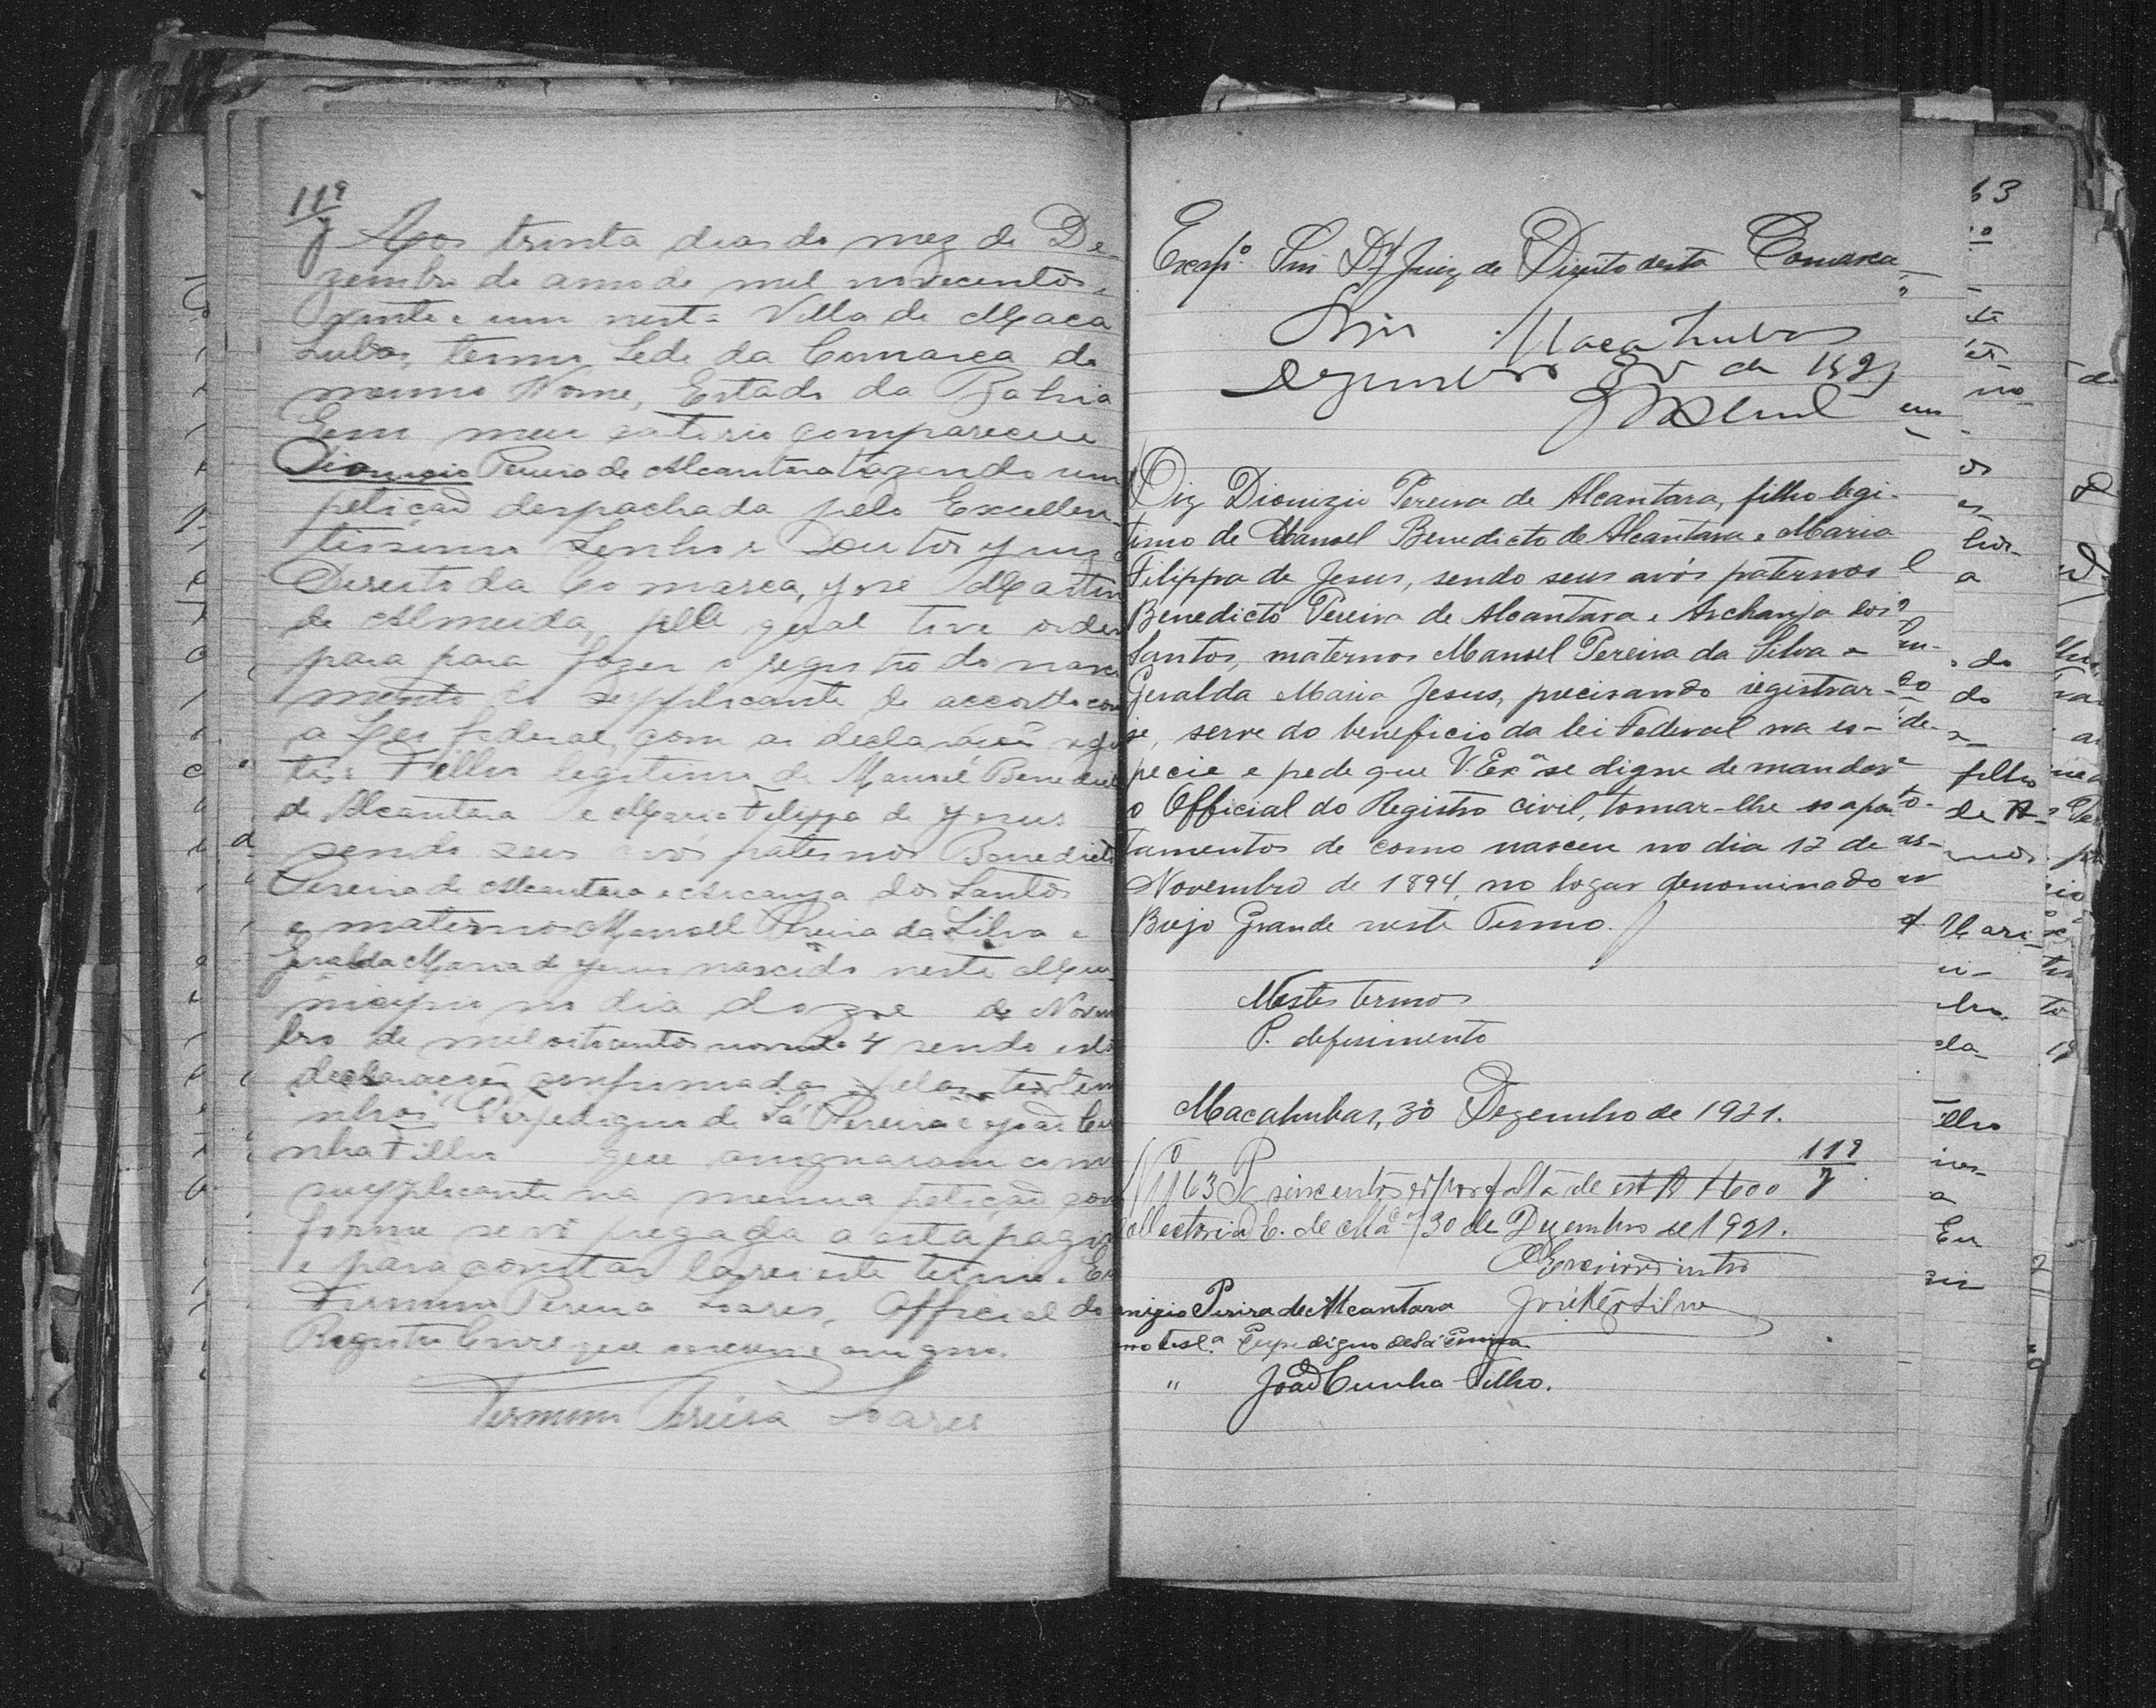 119
7
Aos trinta dias do mez de De-
zembro do anno de mil novecentos e
vinte e um nesta Villa de Maca
hubas, termo Séde da Comarca do
mesmo Nome, Estado da Bahia
Em meu cartorio compareceu
Dionizio Pereira de Alcantara trazendo um
petição despachada pelo Excellen-
tissimo Senhor Doutor Juiz
Direito da Comarca, José Martin
de Almeida, pela qual tive orden
para para fazer o registro do nasci
mento do supplicante de accordo com
a Lei federal, com as declarações segu
tes: Filho legitimo de Manoel Benedicto
de Alcantara e Maria Felippa de Jesus
sendo seus avos paternos Benedicto
Pereira de Alcantara e Arcanja dos Santos
e maternos Manoel Pereira da Silva e
Geralda Maria de Jesus nascido neste Mu-
nicipio no dia doze de Novem
bro de mil oitocentos noventa 4 sendo esta
declarações confirmadas pelas testem
nhas, Perpedigno de Sá Pereira e João Cu
nha Filho que assignaram com
supplicante na mesma petição con
forme se vê pregada a esta pagin
e para constar lavrei este termo. Eu
Firmino Pereira Soares, Official do
Registro Civil que escrevi e assigno.
Firmino Pereira Soares
Exmº. Snr. Dr. Juiz de Direito desta Comarca
Sim Macahubas
Dezembro 30 de 1921
Diz Dionizio Pereira de Alcantara, filho legi-
timo de Manoel Benedicto de Alcantara e Maria
Filippa de Jesus, sendo seus avós paternos
Benedicto Pereira de Alcantara e Archanja dos
Santos, maternos Manoel Pereira da Silva e
Geralda Maria Jesus, precisando registrar-
se, serve do beneficio da lei Federal na es-
pecie e pede que V. Exª se digne de mandar
o Official do Registro civil, tomar-lhe os apon
tamentos de como nasceu no dia 12 de
Novembro de 1894, no logar denominado
Brejo Grande neste Termo.
Nestes termos
P. deferimento
Macahubas, 30 Dezembro de 1921.
119
7
Nº 163 P. seiscentos rs por falta de est R $600
Collectoria E. de Mac 30 de Dezembro de 1921.
nizio Pirira de Alcantara
mo test.ª Perpedigno de Sá Pereira
" João Cunha Filho.
63